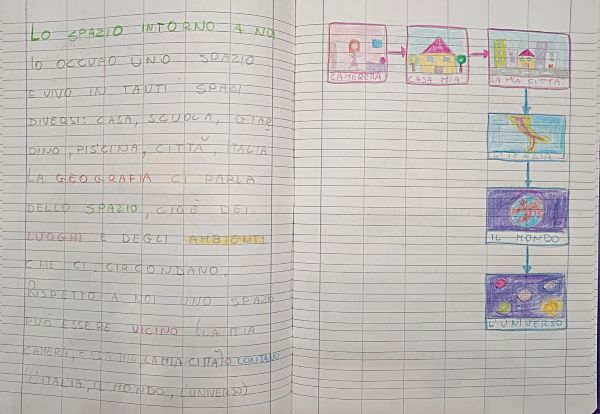 LO SPAZIO INTORNO A NOI
IO OCCUPO UNO SPAZIO
E VIVO IN TANTI SPAZI
DIVERSI: CASA, SCUOLA, GIAR
DINO, PISCINA, CITTÀ, ITALIA
LA GEOGRAFIA CI PARLA
DELLO SPAZIO, CIOÈ DEI
LUOGHI E DEGLI AMBIENTI
CHE CI CIRCONDANO.
RISPETTO A NOI UNO SPAZIO
PUÒ ESSERE VICINO (LA MIA
CAMERA, CASA MIA, LA MIA CITTÀ) O LONTANO
(L'ITALIA, IL MONDO, L'UNIVERSO)
CAMERETTA
CASA MIA
LA MIA CITTÀ
L'ITALIA
IL MONDO
L'UNIVERSO